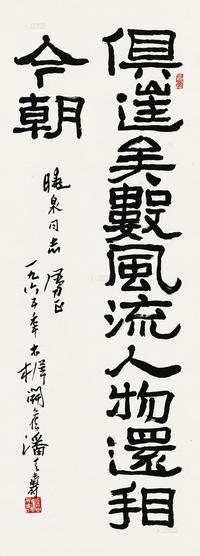 俱往矣數風流人物還看
今朝
曉泉同志屬正
一九六五年木樨開候潘天壽